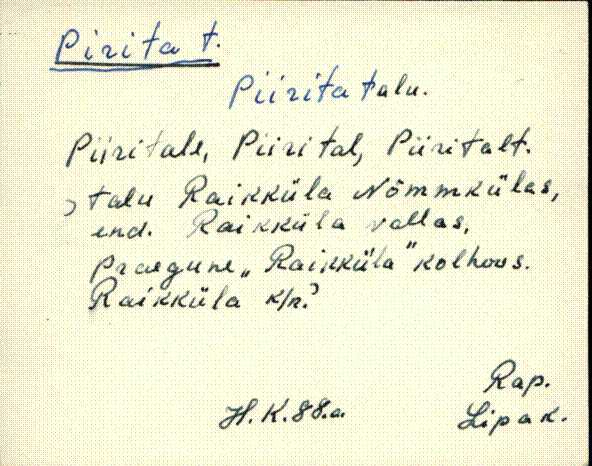 Pirita t.
Piirita talu.
Piiritale, Piirital, Piiritalt.
, talu Raikküla Nõmmkülas,
end. Raikküla vallas,
praegune „Raikküla" kolhoos.
Raikküla k/n.?
Rap.
H. K. 88. a. Lipak.